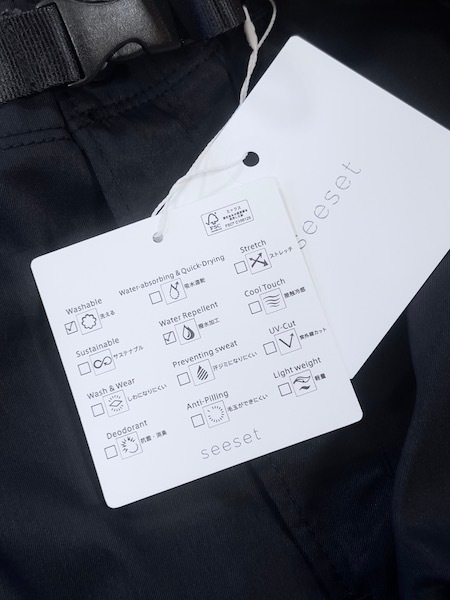 seeset
FSC
ミックス
FSC® C158125
Washable
洗える
Water-absorbing & Quick-Drying
吸水速乾
Stretch
ストレッチ
Sustainable
サステナブル
Water Repellent
撥水加工
Cool Touch
接触冷感
Wash & Wear
しわになりにくい
Preventing sweat
汗ジミになりにくい
UV-Cut
紫外線カット
Deodorant
抗菌・消臭
Anti-Pilling
毛玉ができにくい
Light weight
軽量
seeset